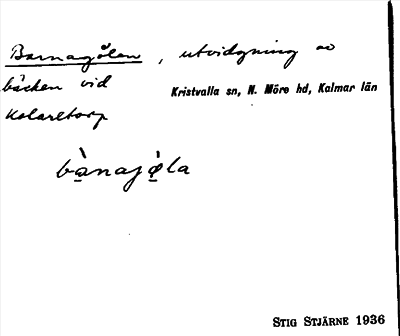 Barnagölen, utvidgning av
bäcken vid
Kolaretorp
Kristvalla sn, N. Möre hd, Kalmar län
bànajø̀la
STIG STJÄRNE 1936